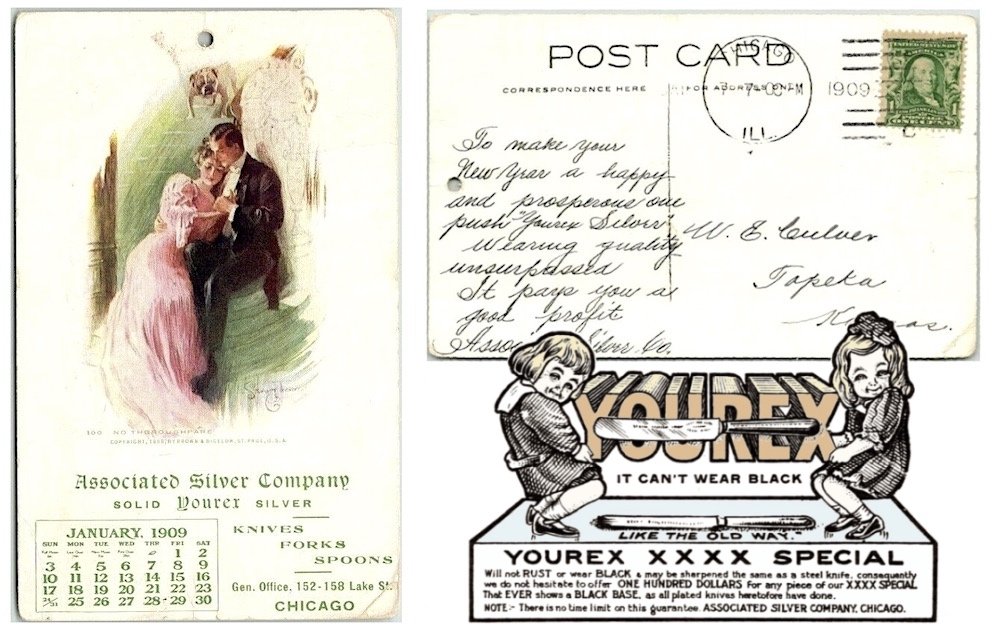 100 NO THOROUGHFARE
COPYRIGHT, 1908, BY BROWN & BIGELOW, ST. PAUL, U.S.A.
Associated Silver Company
SOLID Yourex SILVER
JANUARY, 1909
SUN MON TUE WED THR FRI SAT
1 2
3 4 5 6 7 8 9
10 11 12 13 14 15 16
17 18 19 20 21 22 23
24/31 25 26 27 28 29 30
KNIVES
FORKS
SPOONS
Gen. Office, 152-158 Lake St.
CHICAGO
POST CARD
CORRESPONDENCE HERE
FOR ADDRESS ONLY
CHICAGO
ILL.
1909
To make your
New Year a happy
and prosperous one
push "Yourex Silver"
Wearing quality
unsurpassed
It pays you a
good profit
Associated Silver Co.
W. E. Culver
Topeka
Kansas.
YOUREX
IT CAN'T WEAR BLACK
"LIKE THE OLD WAY."
YOUREX XXXX SPECIAL
Will not RUST or wear BLACK & may be sharpened the same as a steel knife, consequently
we do not hesitate to offer ONE HUNDRED DOLLARS For any piece of our XXXX SPECIAL
That EVER shows a BLACK BASE, as all plated knives heretofore have done.
NOTE:- There is no time limit on this guarantee. ASSOCIATED SILVER COMPANY, CHICAGO.